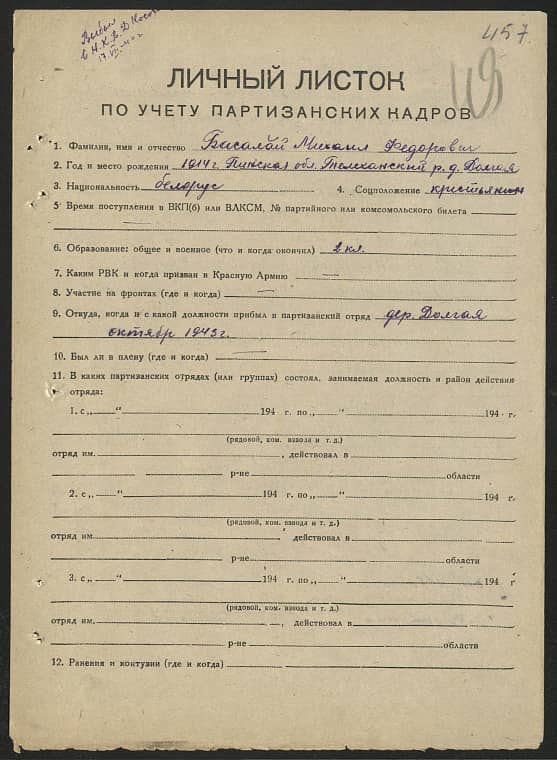 Выбыл
в Н.К.В.Д
457.
ЛИЧНЫЙ ЛИСТОК
ПО УЧЕТУ ПАРТИЗАНСКИХ КАДРОВ
1. Фамилия, имя и отчество Басалай Михаил Федорович
2. Год и место рождения 1914 г. Пинская обл. Телеханский р. д. Долгая
3. Национальность белорус 4. Соцположение кристьянин
5. Время поступления в ВКП(б) или ВЛКСМ, № партийного или комсомольского билета
6. Образование: общее и военное (что и когда окончил) 2 кл.
7. Каким РВК и когда призван в Красную Армию —
8. Участие на фронтах (где и когда) —
9. Откуда, когда и с какой должности прибыл в партизанский отряд дер. Долгая
октябрь 1943 г.
10. Был ли в плену (где и когда) —
11. В каких партизанских отрядах (или группах) состоял, занимаемая должность и район действия
отряда:
1. с „ “ 194 г. по „ “ 194 г.
(рядовой, ком. взвода и т. д.)
отряд им. , действовал в
р-не области
2. с „ “ 194 г. по „ “ 194 г.
(рядовой, ком. взвода и т. д.)
отряд им. действовал в
р-не области
3. с „ “ 194 г. по „ “ 194 г
(рядовой, ком. взвода и т. д.)
отряд им. , действовал в
р-не области
12. Ранения и контузии (где и когда)